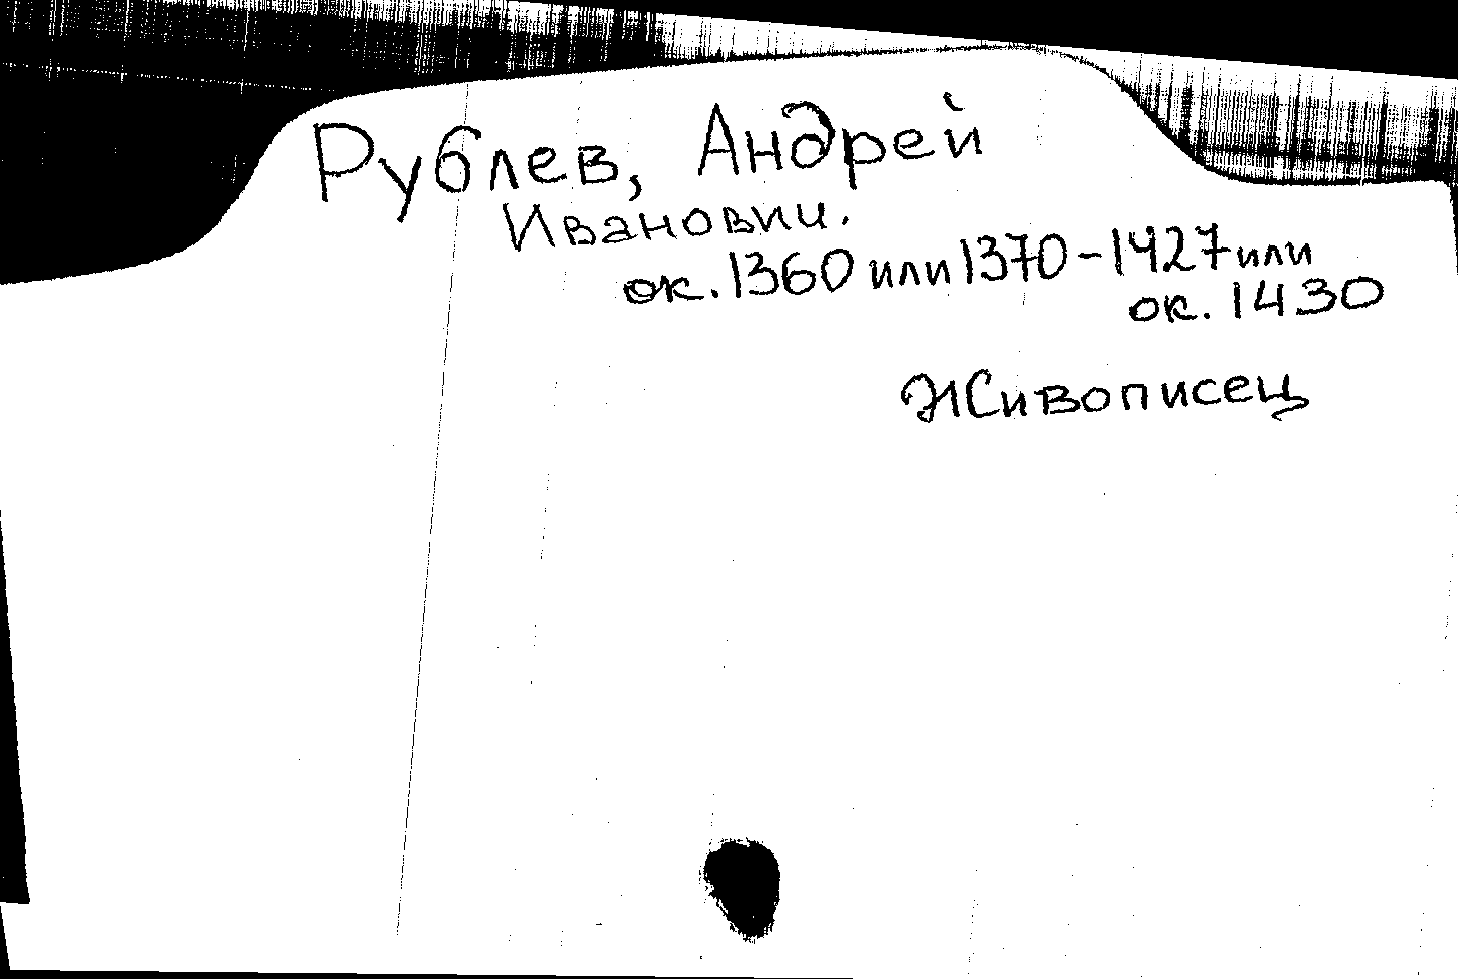 Рублев, Андрей
Ивановии.
ок. 1360 или 1370-1427 или
ок. 1430
Живописец